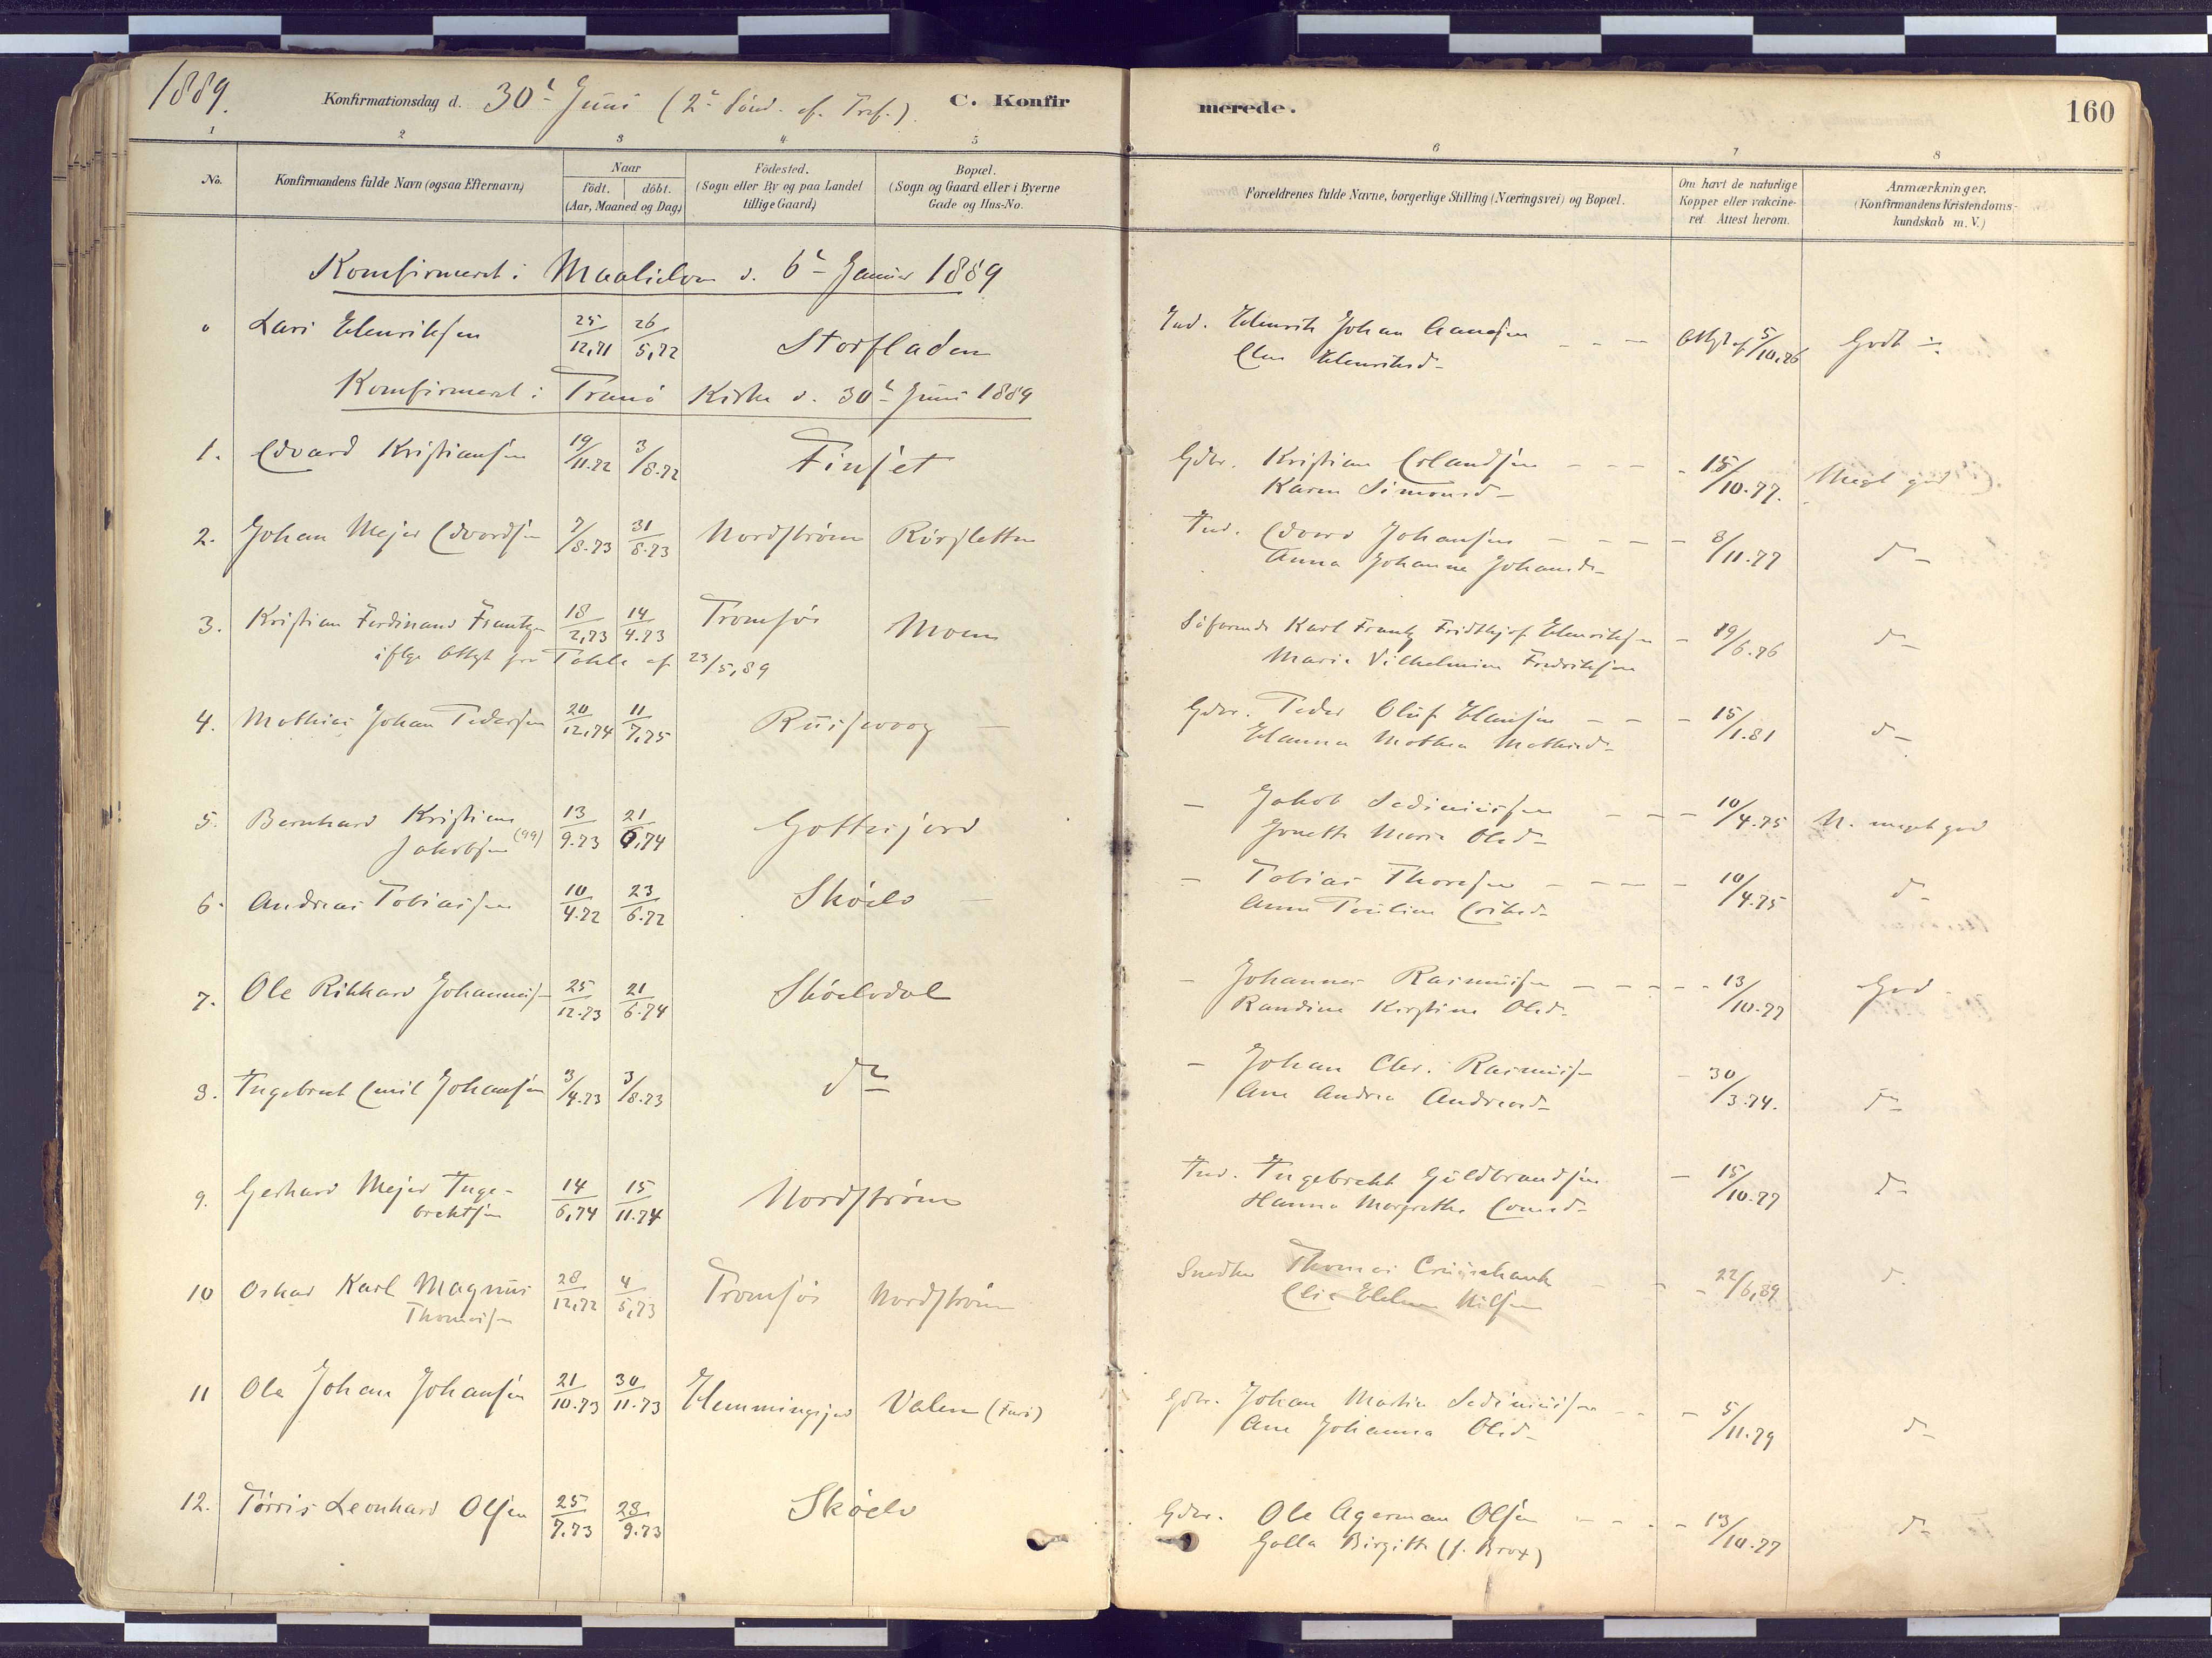 1889.
Konfirmationsdag d. 30t Juni (2n Sönd. ef. Tref.)
C. Konfirmerede.
160
1 2 3 4 5 6 7 8
No.
Konfirmandens fulde Navn (ogsaa Efternavn)
Naar
födt. döbt.
(Aar, Maaned og Dag)
Födested.
(Sogn eller By og paa Landet
tillige Gaard)
Bopæl.
(Sogn og Gaard eller i Byerne
Gade og Hus-No.
Forældrenes fulde Navne, borgerlige Stilling (Næringsvei) og Bopæl.
Om havt de naturlige
Kopper eller vakcine-
ret. Attest herom.
Anmærkninger.
(Konfirmandens Kristendoms-
kundskab m. V.)
Komfirmeret i Maalselven d. 6t Januar 1889
Lars Henriksen 25/12,71 26/5,72 Storfladen
Ind. Henrik Johan
Elen Henriksd-
5/10,76 Godt
Komfirmeret i Tranö Kirke d. 30t Juni 1889
1. Edvard Kristiansen 19/11.72 3/8.72 Finset
Gdbr. Kristian Erlandsen
Karen Simonsd-
15/10.77. Meget god
2. Johan Mejer Edvardsen 7/8.73 31/8.73 Nordström Rörsletten
Ind. Edvard Johansen
Anna Johanna Johansd-
8/11.77 do
3. Kristian Ferdinand Frantz- 18/2,73 14/4.73 Tromsö Moen
iflge Attest fra af 23/5,89
Söfarende Karl Frantz Fridthjof Henriksen
Marie Vilhelmine Fredriksen
19/6.76 do
4. Mathias Johan Pedersen 20/12,74 11/7,75
Gdbr. Peder Oluf Hansen
Hanna Mathea Mathisd-
15/1.81 do
5. Bernhard Kristian
Jakobsen (99) 13/9.73 21/6,74 Gottesjord
- Jakob
Jonetta Maria Olsd-
10/4.75 N. meget god
6. Andreas Tobiassen 10/4.72 23/6.72 Sköelv
- Tobias Thoresen
Anne Pauline
10/4.75 do
7. Ole Rikkard Johannes- 25/12.73 21/6.74 Sköelvdal
- Johannes Rasmussen
Randine Kirstine Olsd-
13/10.77 God
8. Ingebret Emil Johansen 3/4.73 3/8.73 do
- Johan Chr. Rasmus-
Ane Andrea Andreasd-
30/3.74. do
9. Gerhard Mejer Inge-
brektsen 14/6,74 15/11.74 Nordström
Ind. Ingebrekt Guldbrandsen
Hanna Margrethe
15/10.77 do
10 Oskar Karl Magnus
Thomassen 28/12,72 4/5,73 Tromsö Nordström
Snedker Thomas Cruischank
Nilsen
22/6,89 do
11 Ole Johan Johansen 21/10.73 30/11.73 Hemmingsjord Valen
Gdbr. Johan Martin
Ane Johanna Olsd-
5/11.79 do
12. Törris Leonhard Olsen 25/7.73 28/9.73 Sköelv
Gdbr. Ole Agerman Olsen
Golla Birgitte (f. Brox)
13/10.77 do